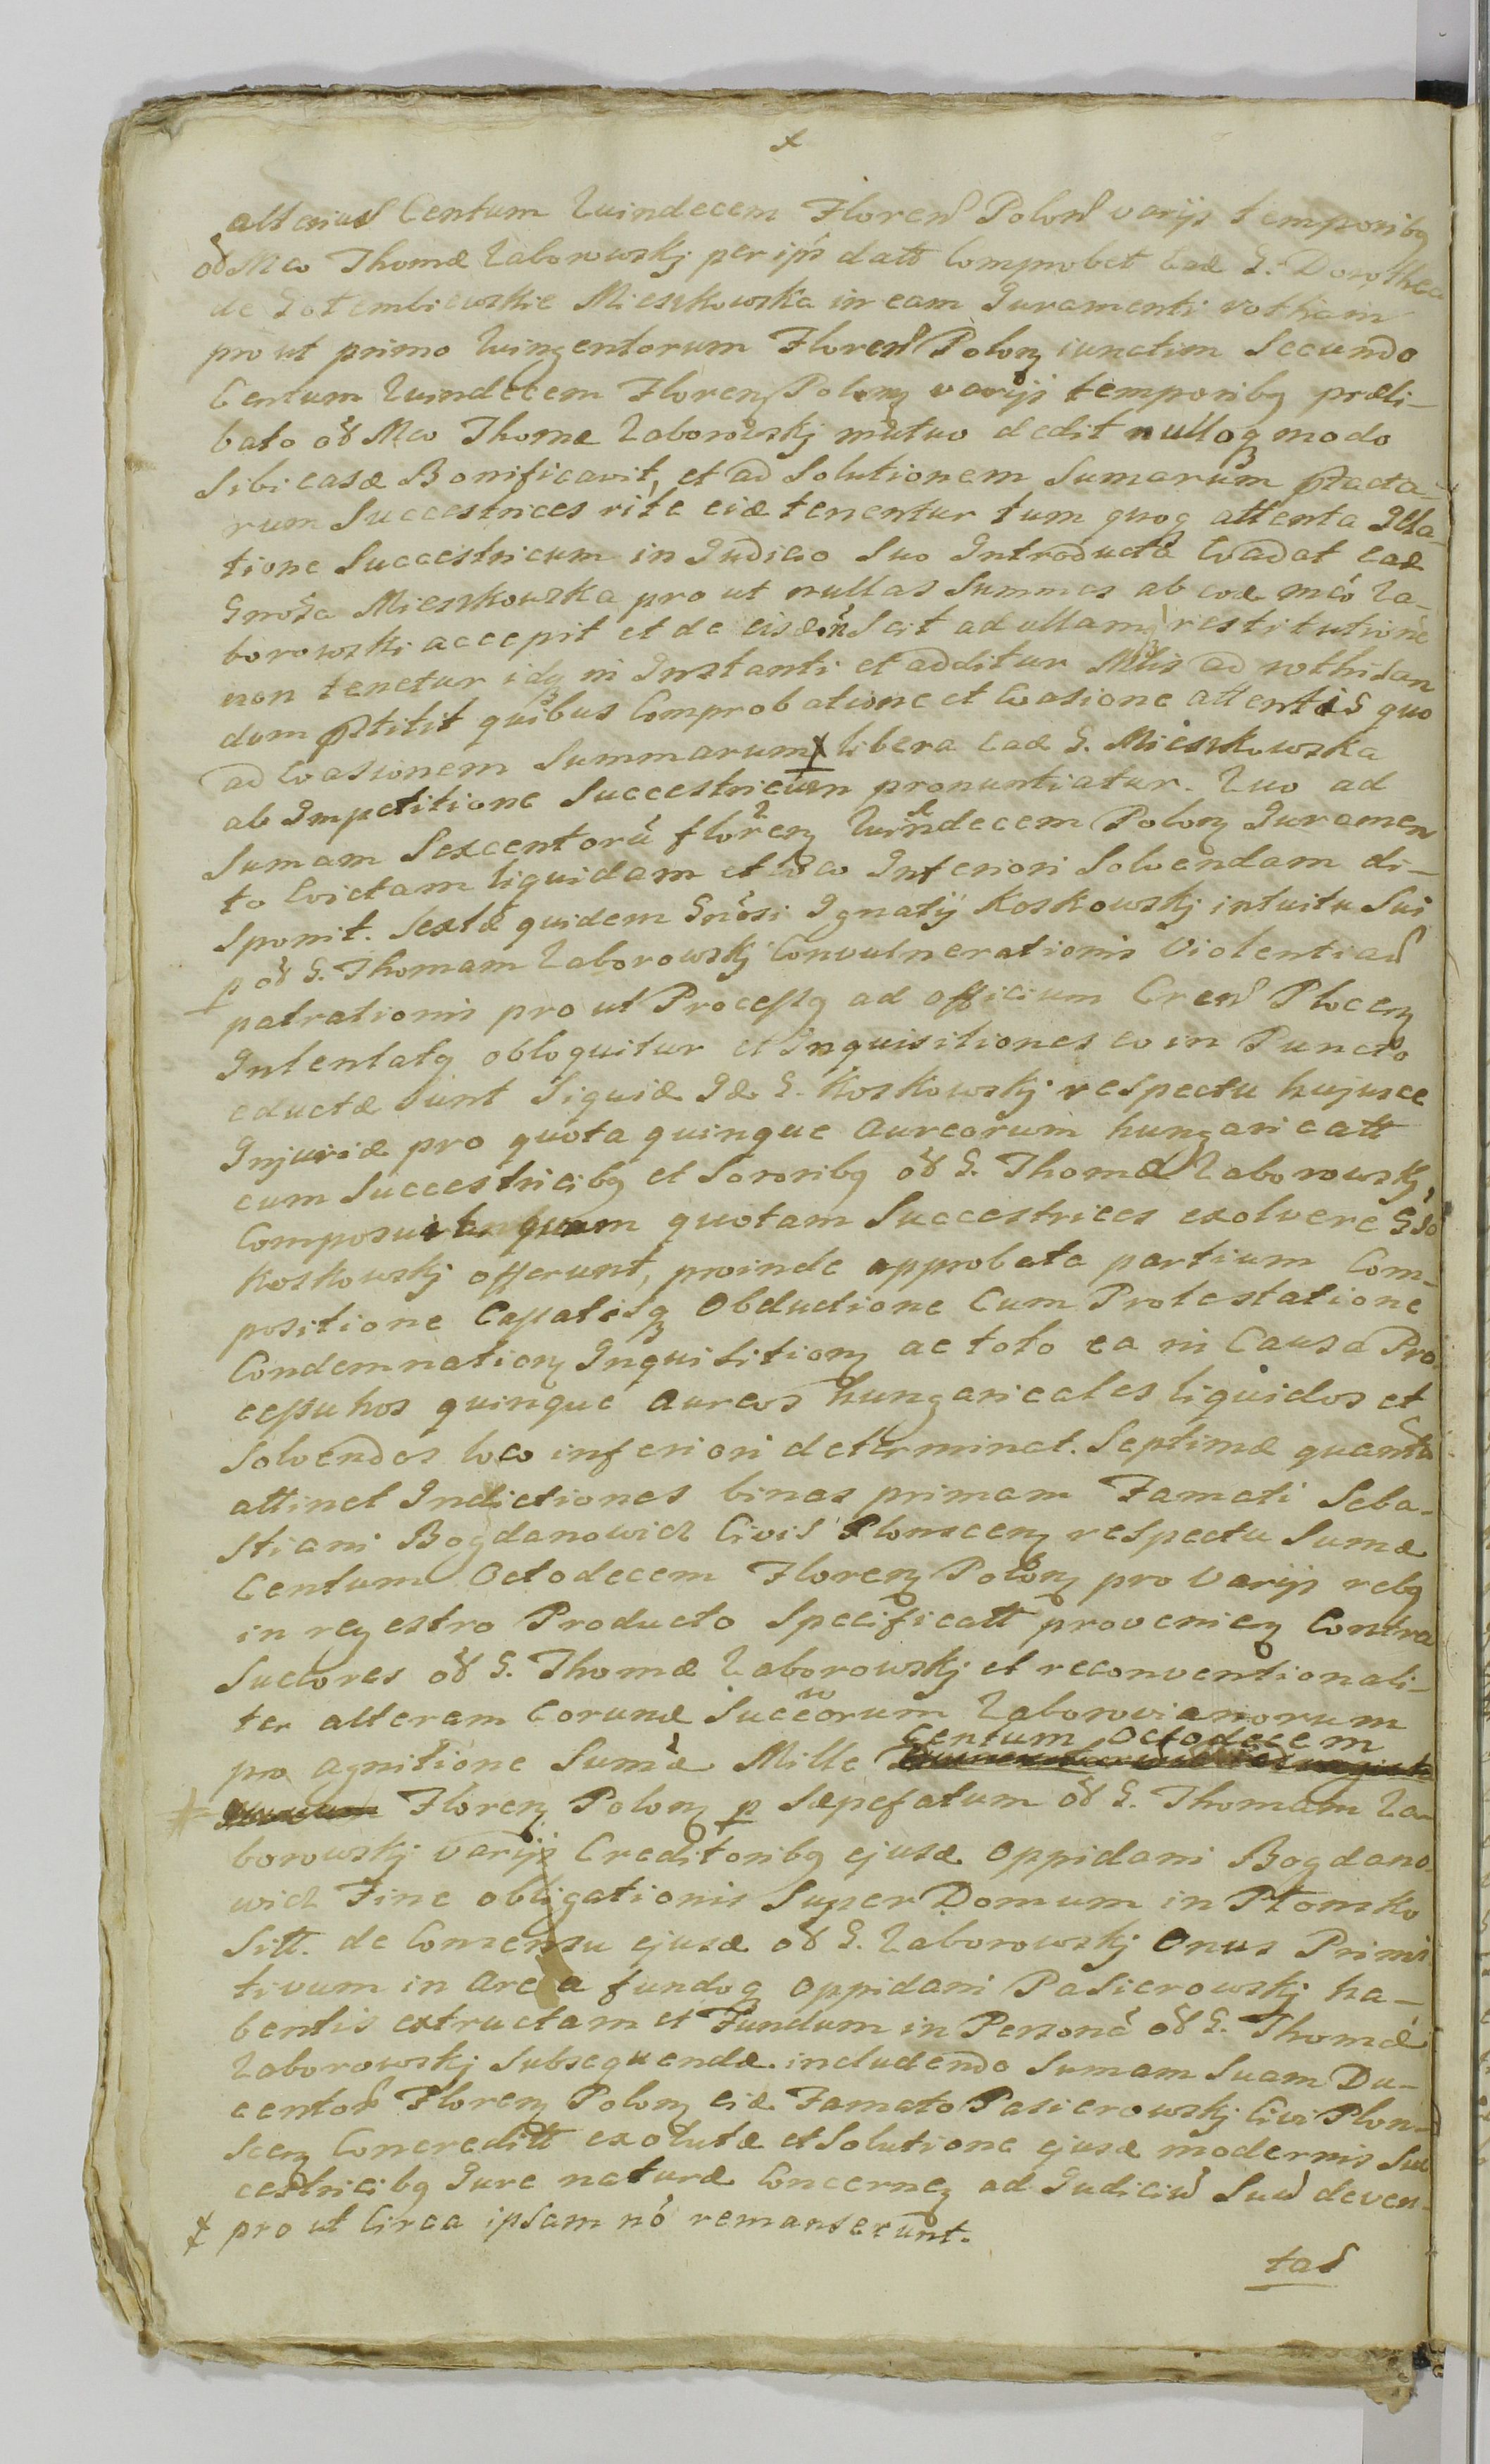 x
alterius Centum Quindecem Floren Polon varijs temporibq
od Mco Thomæ Zaborowskj per ips datt Comprobet Eadē G. Dorothea
de Gotembiewskie Mieszkowska in eam Juramenti rotham
pro ut primo Quingentorum Floren Polonz iunctim Secundo
Centum Quindecem Florenz Polonz varijs temporibq præli-
bato od Mco Thomæ Zaborowskj mutuo dedit nulloq modo
Sibi easdæ Bonificavit, et ad Solutionem Sumarum ptacta-
rum Succestrices rite eidæ tenentur tum quoq attenta Illa-
tione Succestricum in Judicio Suo Introducta Evadat eadæ
Gnosa Mieszkowska pro ut nullas Summas ab eodæ mco Za-
borowski accepit et de eisdæ n Scit ad ullam restitutione
non tenetur idq in Instanti et additur Mtis ad rothisan
dum pstitit quibus Comprobatione et Evasione attentis quo
ad Evasionem Summarum x libera eadæ G. Mieszkowska
ab Impetitione Succestricum pronuntiatur. Quo ad
Sumam Sexcentoru florenz Quindecem Polonz Juramen
to Evictam liquidam et loco Inferiori Solvendam di-
sponit. Sextæ quidem Gnosi Ignatij Koskowskj intuitu Sui
p od G. Thomam Zaborowskj Convulnerationis Violentiar
patrationis pro ut Processq ad officium Cren Plocenz
Intentatq obloquitur et Inquisitiones eo in Puncto
eductæ sunt Siquidæ Idæ G. Koskowskj respectu hujusce
Injuriæ pro quota quinque Aureorum hungaricatt
cum Succestricibq et Sororibq od G. Thomæ Zaborowskj,
Composuit quam quotam Succestrices exolvere Gso
Koskowskj offerunt, proinde approbata partium Com-
positione Cassatisq Obductione Cum Protestatione
Condemnationz Inquisitionz ac toto ea in Causa Pro-
cessu hos quinque aureos hungaricales liquidos et
Solvendos loco inferiori determinat. Septimæ quanto
attinet Indictiones binas primam Famati Seba-
stiani Bogdanowicz Civis Plonscenz respectu Sumæ
Centum Octodecem Florenz Polonz pro varijs rebq
in regestro Producto Specificatt provenienz Contra
Suctores od G. Thomæ Zaborowskj et reconventionali-
ter alteram eorundæ Succorum Zaborovianorum
pro agnitione Sumæ Mille Centum Octodecem
Florenz Polonz p Sæpefatum od G. Thomam Za-
borowskj varijs Creditoribq ejusdæ Oppidani Bogdano-
wicz Fine obligationis Super Domum in Płonsko
Sitt. de Consensu ejusdæ od G. Zaborowskj Onus Primi
tivum in Area fundoq Oppidani Pasierowskj ha-
bentis extructam et Fundum in Personā od G. Thomæ
Zaborowskj Subsequendæ. includendo Sumam Suam Du-
centor Florenz Polonz eidæ Famato Pasierowskj Civi Plon-
scenz Concreditt exolutæ et Solutione ejusdæ modernis Suc
cestricibq Jure naturæ Concernenz ad Judiciu Suu deven-
x pro ut Circa ipsam nō remanserunt.
tas